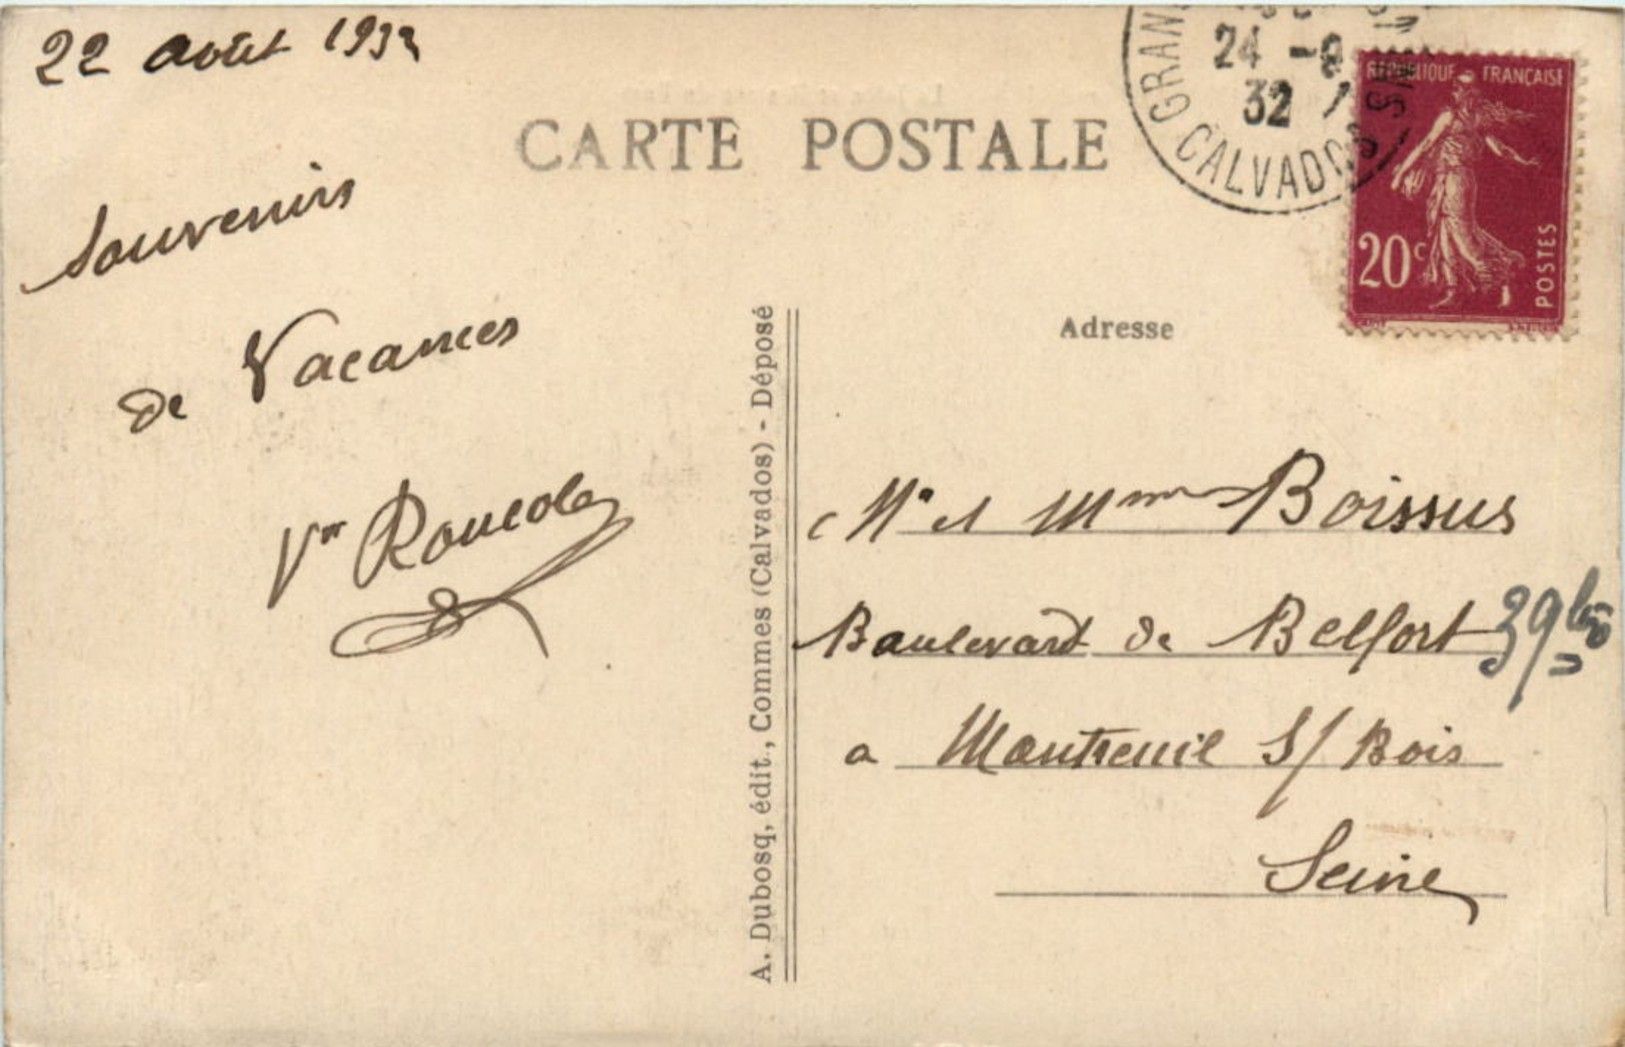 22 août 1932
Souvenirs
de Vacances
CARTE POSTALE
GRAN
24 -8
32
CALVADOS
REPUBLIQUE FRANÇAISE
20c
POSTES
A. Dubosq, édit., Commes (Calvados) - Déposé
Adresse
Mr et Mme Boissus
Boulevard de Belfort 39 bis
a Montreuil S/ Bois
Seine